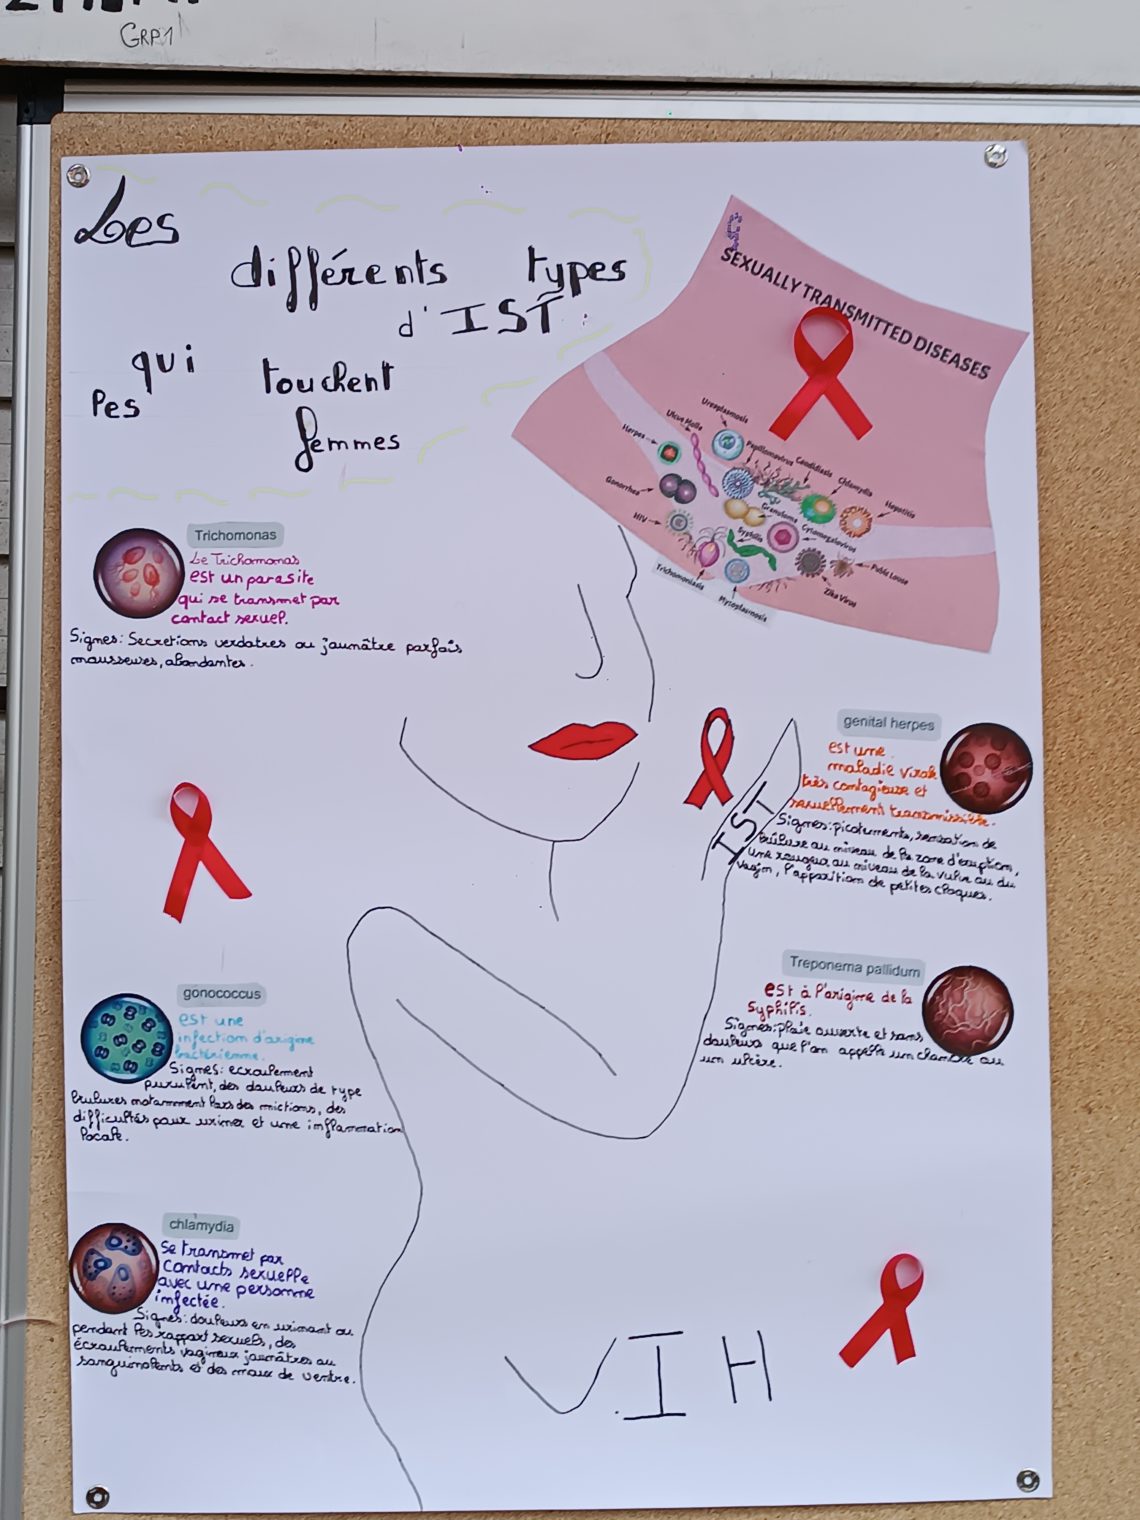 GRP1
Les
différents types
d'IST
qui touchent
les femmes
SEXUALLY TRANSMITTED DISEASES
Ureaplasmosis
Ulcus Molle
Herpes
Papillomavirus
Candidiasis
Chlamydia
Hepatitis
Gonorrhea
Granuloma
Cytomegalovirus
HIV
Syphilis
Pubic Louse
Trichomoniasis
Zika Virus
Mycoplasmosis
Trichomonas
Le Trichomonas
est un parasite
qui se transmet par
contact sexuel.
Signes: Secretions verdatres ou jaunâtre parfois
mousseuses, abondantes.
genital herpes
est une
maladie virale
très contagieuse et
sexuellement transmissible.
Signes: picotements, sensation de
brûlure au niveau de la zone d'éruption,
une rougeur au niveau de la vulve ou du
vagin, l'apparition de petites cloques.
IST
gonococcus
est une
infection d'origine
bactérienne.
Signes: ecoulement
purulent, des douleurs de type
brulures notamment lors des mictions, des
difficultés pour uriner et une inflammation
locale.
Treponema pallidum
est à l'origine de la
Syphilis.
Signes: plaie ouverte et sans
douleurs que l'on appelle un chancre ou
un ulcère.
chlamydia
Se transmet par
contacts sexuelle
avec une personne
infectée.
Signes: douleurs en urinant ou
pendant les rapport sexuels, des
écoulements vaginaux jaunâtres ou
sanguinolents et des maux de ventre.
V.IH